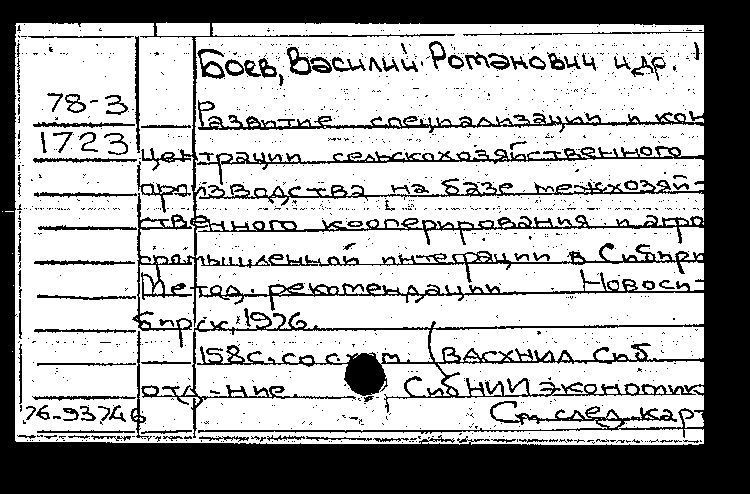 Боев, Василий Романович и др.
78-3
Развитие специализации и кон
1723
центрации сельскохозяйственного
производства на базе межхозяй-
ственного кооперирования и агро
промышленной интеграции в Сибири
Метод. рекомендации Новоси-
бирск, 1976.
158 с. со схем. (ВАСХНИЛ Сиб.
отд-ние. СибНИИ экономик
76-93746 См. след. карт